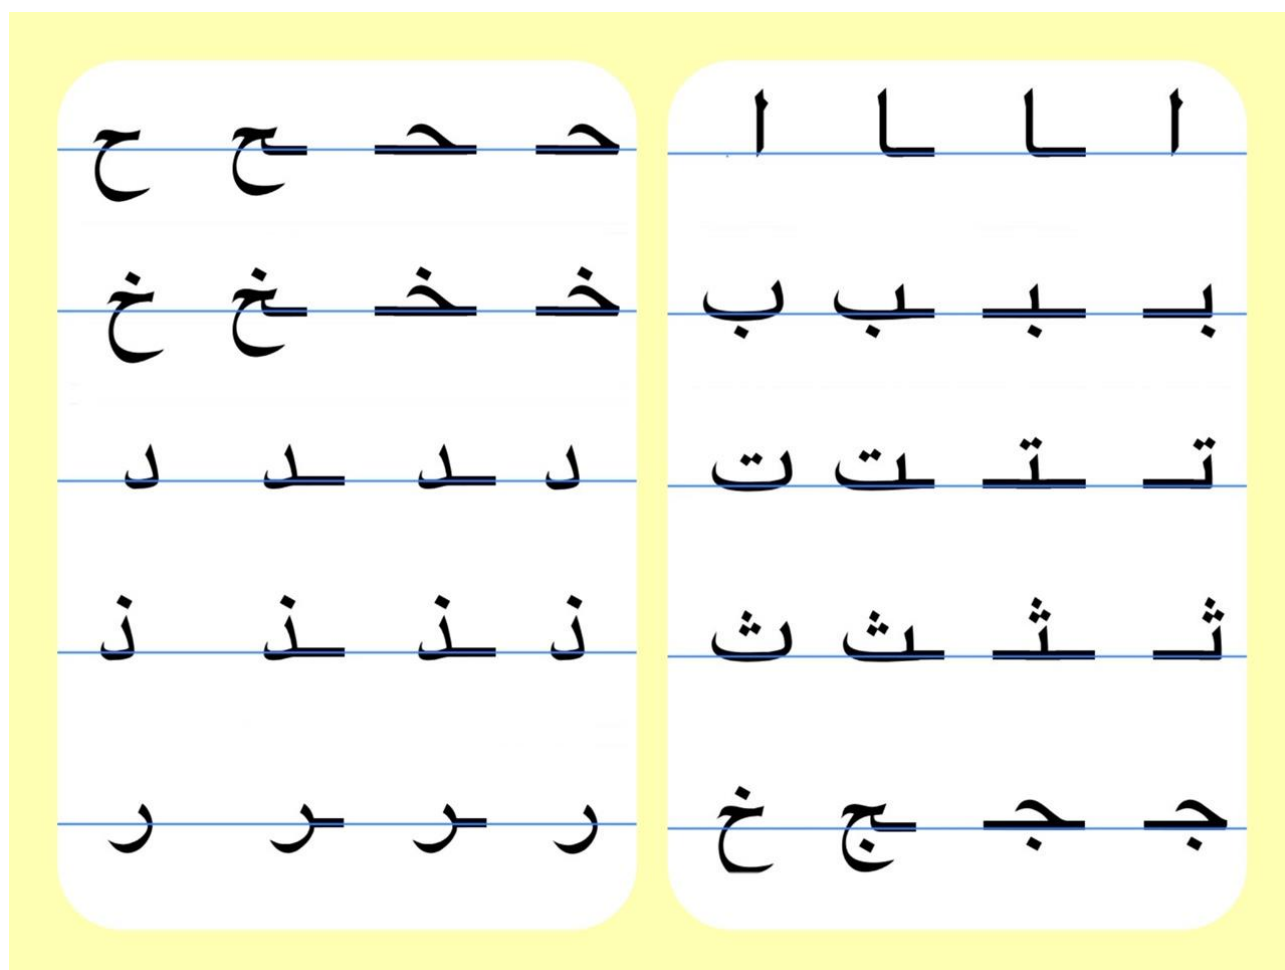 ا ـا ـا ا
بـ ـبـ ـب ب
تـ ـتـ ـت ت
ثـ ـثـ ـث ث
جـ ـجـ ـج خ
حـ ـحـ ـح ح
خـ ـخـ ـخ خ
د ـد ـد د
ذ ـذ ـذ ذ
ر ـر ـر ر